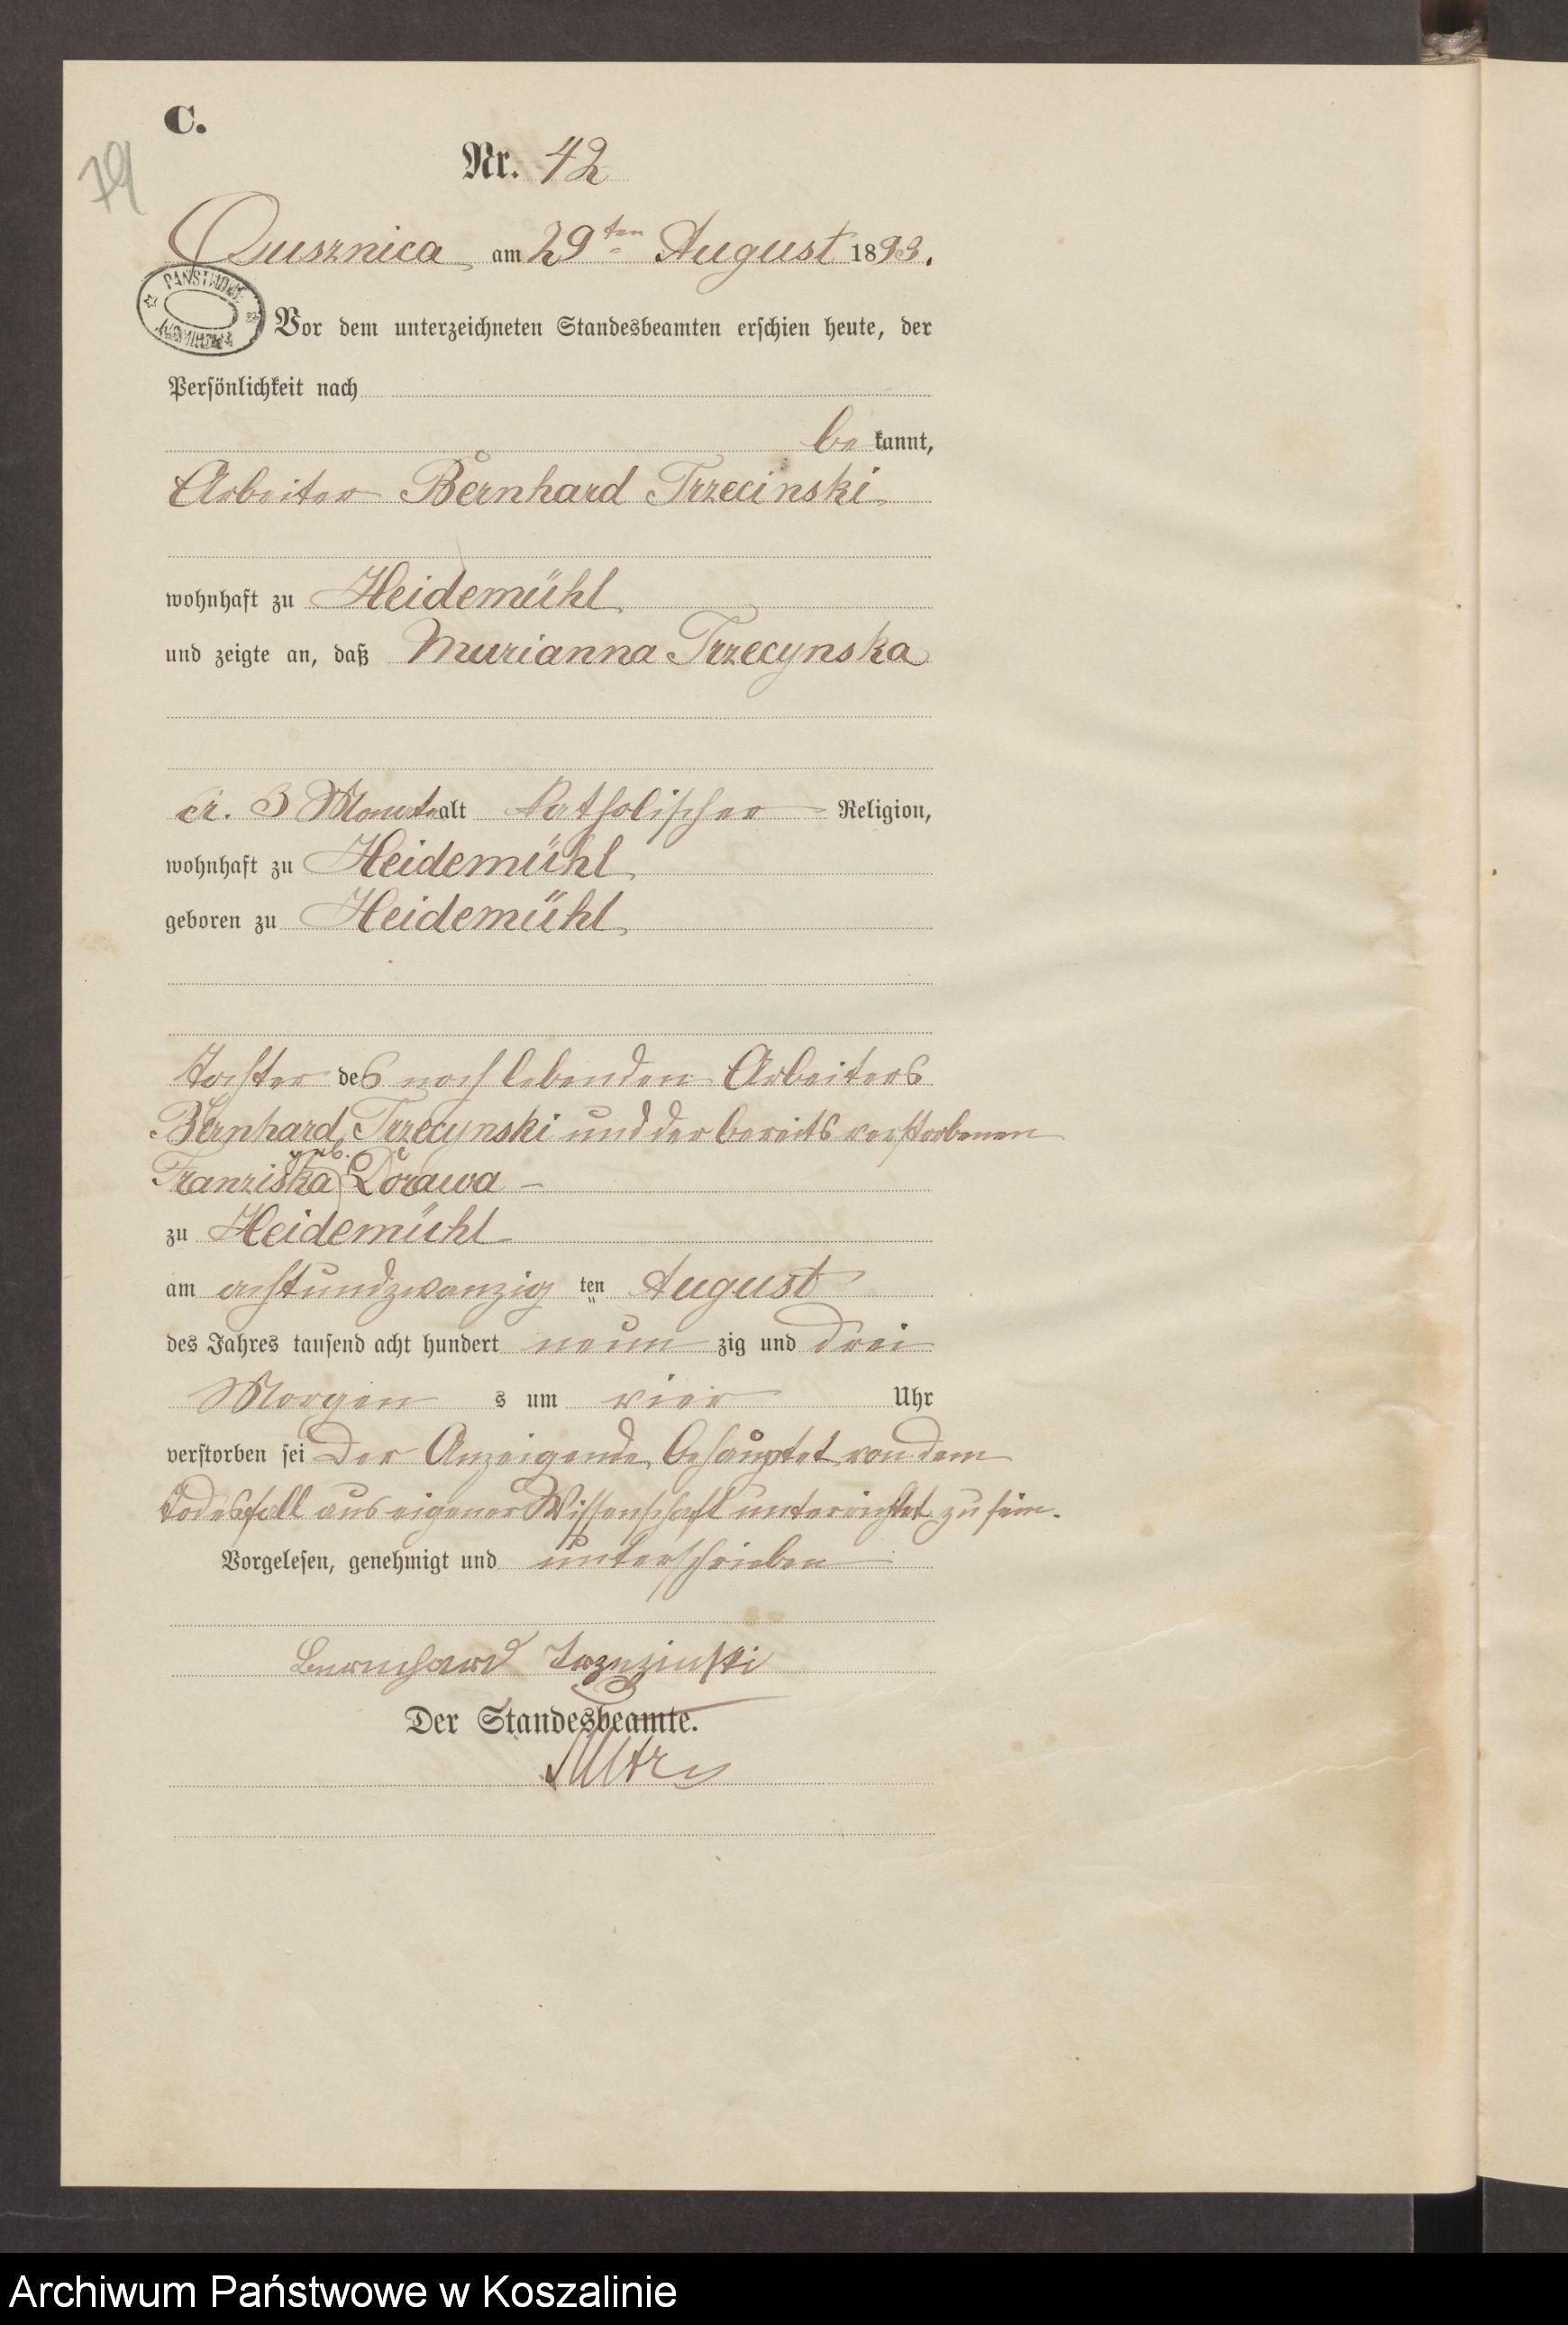 C.
79
Nr. 42
Qusznica am 29ten August 1893.
PAŃSTWOWE
Vor dem unterzeichneten Standesbeamten erschien heute, der
Persönlichkeit nach
be kannt,
Arbeiter Bernhard Trzecinski
wohnhaft zu Heidemühl
und zeigte an, daß Marianna Trzecynska
3 Monate alt katholischer Religion,
wohnhaft zu Heidemühl
geboren zu Heidemühl
Tochter des noch lebenden Arbeiters
Bernhard Trzecynski und der bereits verstorbenen
Franziska geb. Dorawa
zu Heidemühl
am achtundzwanzig ten August
des Jahres tausend acht hundert neun zig und drei
Morgen s um vier Uhr
verstorben sei Der Anzeigende behauptet von dem
Todesfall aus eigener Wissenschaft unterrichtet zu sein.
Vorgelesen, genehmigt und unterschrieben
Der Standesbeamte.
Archiwum Państwowe w Koszalinie